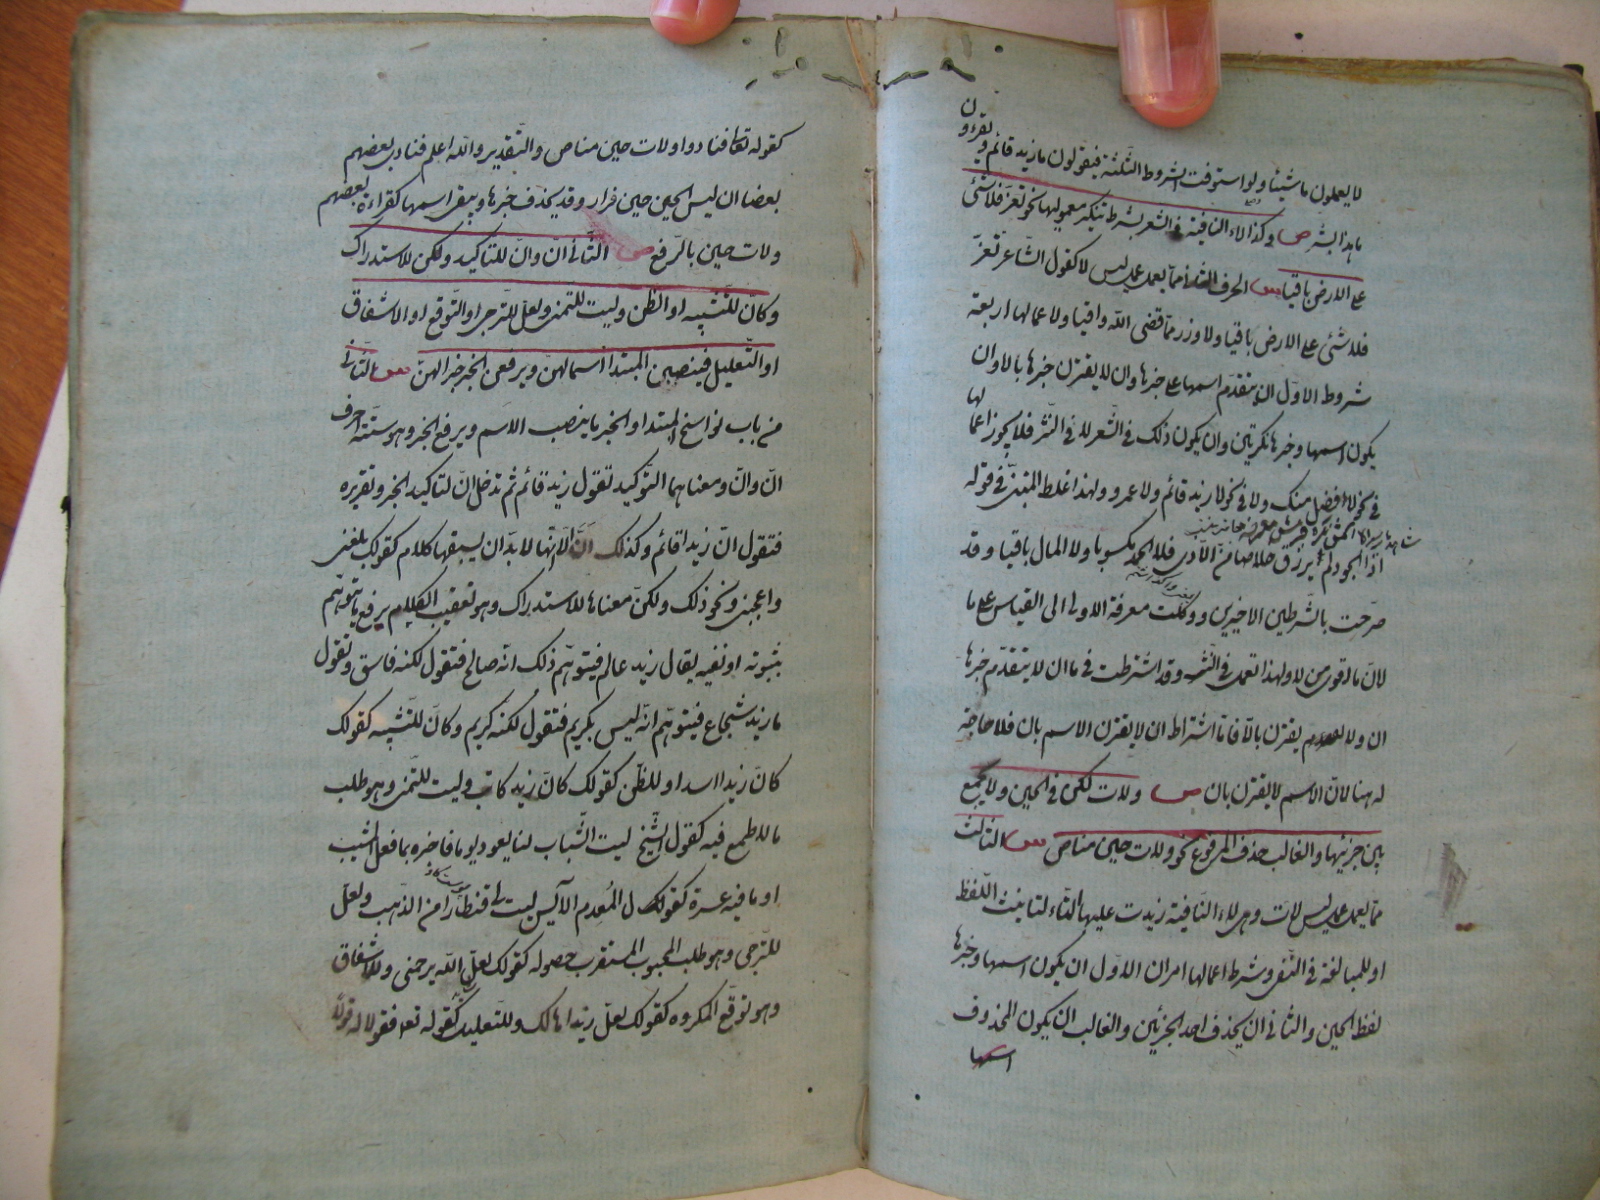 لا يعملون ما شيئا ولو استوفت الشروط الثلثة فيقولون ما زيد قائم ويقرءون
ما هذا بشر ص وكذا لاء النافية فى الشعر بشرط تنكير معموليها نحو تعز فلا شئ
على الارض باقيا س الحرف الثانى مما يعمل عمل ليس لا كقول الشاعر تعز
فلا شئ على الارض باقيا ولا وزر مما قضى الله واقيا ولاعمالها اربعة
شروط الاول ان يتقدم اسمها على خبرها وان لا يقترن خبرها بالا وان
يكون اسمها وخبرها نكرتين وان يكون ذلك فى الشعر لا فى النثر فلا يجوز اعمالها
فى نحو لا افضل منك ولا فى نحو لا زيد قائم ولا عمرو ولهذا غلط المتنبى فى قوله
اذا الجود لم يرزق خلاصا من الاذى فلا الحمد مكسوبا ولا المال باقيا وقد
صرحت بالشرطين الاخيرين ووكلت معرفة الاولى الى القياس على ما
لان ما اقوى من لا ولهذا تعمل فى النثر وقد اشترطت فى ما ان لا يتقدم خبرها
ان ولا يقترن بالا فاما اشتراط ان لا يقترن الاسم بان فلا حاجة
له هنا لان الاسم لا يقترن بان ص ولات لكن فى الحين ولا يجمع
بين جزئيها والغالب حذف المرفوع نحو ولات حين مناص س الثالث
مما يعمل عمل ليس لات وهى لاء النافية زيدت عليها التاء لتانيث اللفظ
او للمبالغة فى النفى وشرط اعمالها امران الاول ان يكون اسمها وخبرها
لفظ الحين والثانى ان يحذف احد الجزئين والغالب ان يكون المحذوف
اسمها
كقوله تعا فنادوا ولات حين مناص والتقدير والله اعلم فنادى بعضهم
بعضا ان ليس الحين حين فرار وقد يحذف خبرها ويبقى اسمها كقراءة بعضهم
ولات حين بالرفع ص الثانى ان وان للتاكيد ولكن للاستدراك
وكان للتشبيه او الظن وليت للتمنى ولعل للترجى او التوقع او الاشفاق
او التعليل فينصبن المبتدا اسما لهن ويرفعن الخبر خبرا لهن س الثانى
من باب نواسخ المبتدا والخبر ما ينصب الاسم ويرفع الخبر وهو ستة احرف
ان وان ومعناهما التوكيد تقول زيد قائم ثم تدخل ان لتاكيد الخبر وتقريره
فتقول ان زيدا قائم وكذلك ان الا انها لا بد ان يسبقها كلام كقولك بلغنى
واعجبنى ونحو ذلك ولكن معناها للاستدراك وهو تعقيب الكلام برفع ما يتوهم
بثبوته او نفيه يقال زيد عالم فيتوهم ذلك انه صالح فتقول لكنه فاسق وتقول
ما زيد شجاع فيتوهم انه ليس بكريم فتقول لكنه كريم وكان للتشبيه كقولك
كان زيدا اسد او للظن كقولك كان زيد كاتب وليت للتمنى وهو طلب
ما لا طمع فيه كقول الشيخ ليت الشباب لنا يعود يوما فاخبره بما فعل المشيب
او ما فيه عسرة كقول المعدم الآيس ليت لى قنطارا من الذهب ولعل
للترجى وهو طلب المحبوب المستقرب حصوله كقولك لعل الله يرحمنى وللاشفاق
وهو توقع المكروه كقولك لعل زيدا هالك وللتعليل كقوله تعا فقولا له قولا